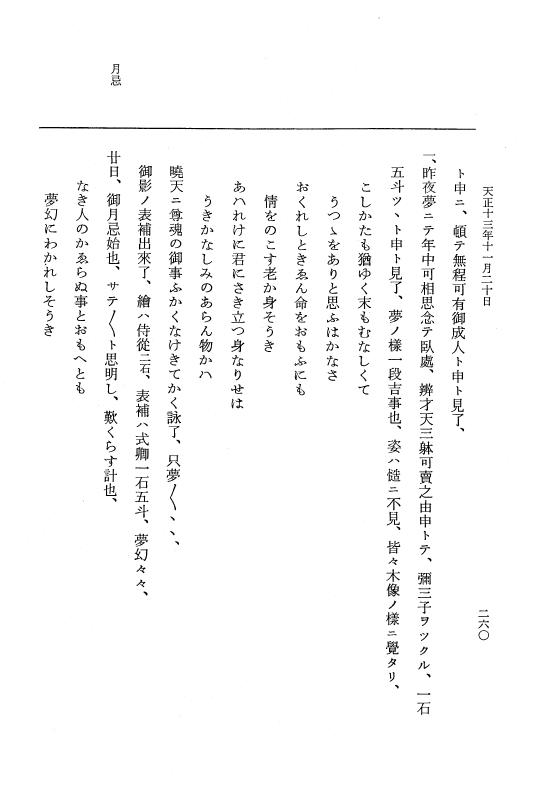 天正十三年十一月二十日
二六〇
ト申ニ、頓テ無程可有御成人ト申ト見了、
一、昨夜夢ニテ年中可相思念テ臥處、辨才天三躰可賣之由申トテ、彌三子ヲツクル、一石
五斗ツヽト申ト見了、夢ノ樣一段吉事也、姿ハ慥ニ不見、皆々木像ノ樣ニ覺タリ、
こしかたも猶ゆく末もむなしくて
うつゝをありと思ふはかなさ
おくれしときゑん命をおもふにも
情をのこす老か身そうき
あハれけに君にさき立つ身なりせは
うきかなしみのあらん物かハ
曉天ニ尊魂の御事ふかくなけきてかく詠了、只夢〳〵、、、
御影ノ表補出來了、繪ハ侍從二石、表補ハ式卿一石五斗、夢幻々々、
月忌
廿日、御月忌始也、サテ〳〵ト思明し、歎くらす計也、
なき人のかゑらぬ事とおもへとも
夢幻にわかれしそうき